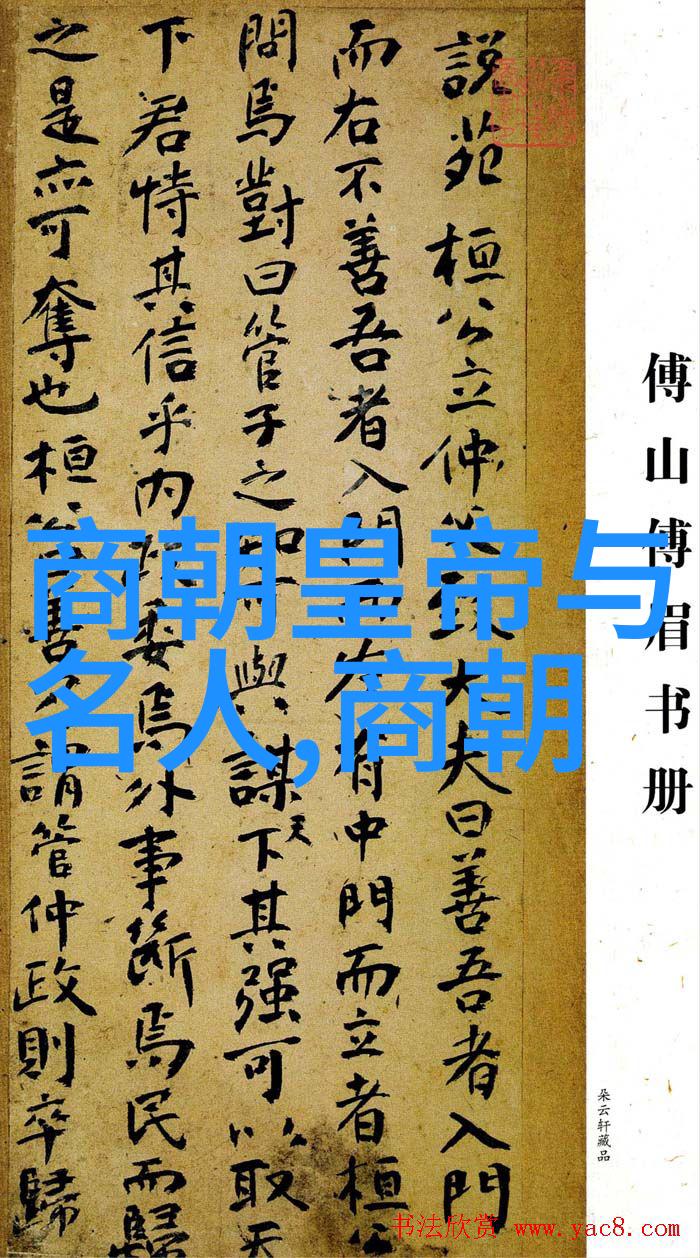 商朝皇帝与
名人,商朝
說苑 桓公立仲父致大夫曰善吾者入門
而右不善吾者入門而左有中門而立者桓公
問焉對曰管子之知可與謀天下其强可以取天
下君恃其信乎内政委焉外事斷焉民而歸
之是亦可奪也桓公善乃謂管仲政則卒歸
傅山傅眉书册
朵云轩藏品
书法欣赏 www.yac8.com